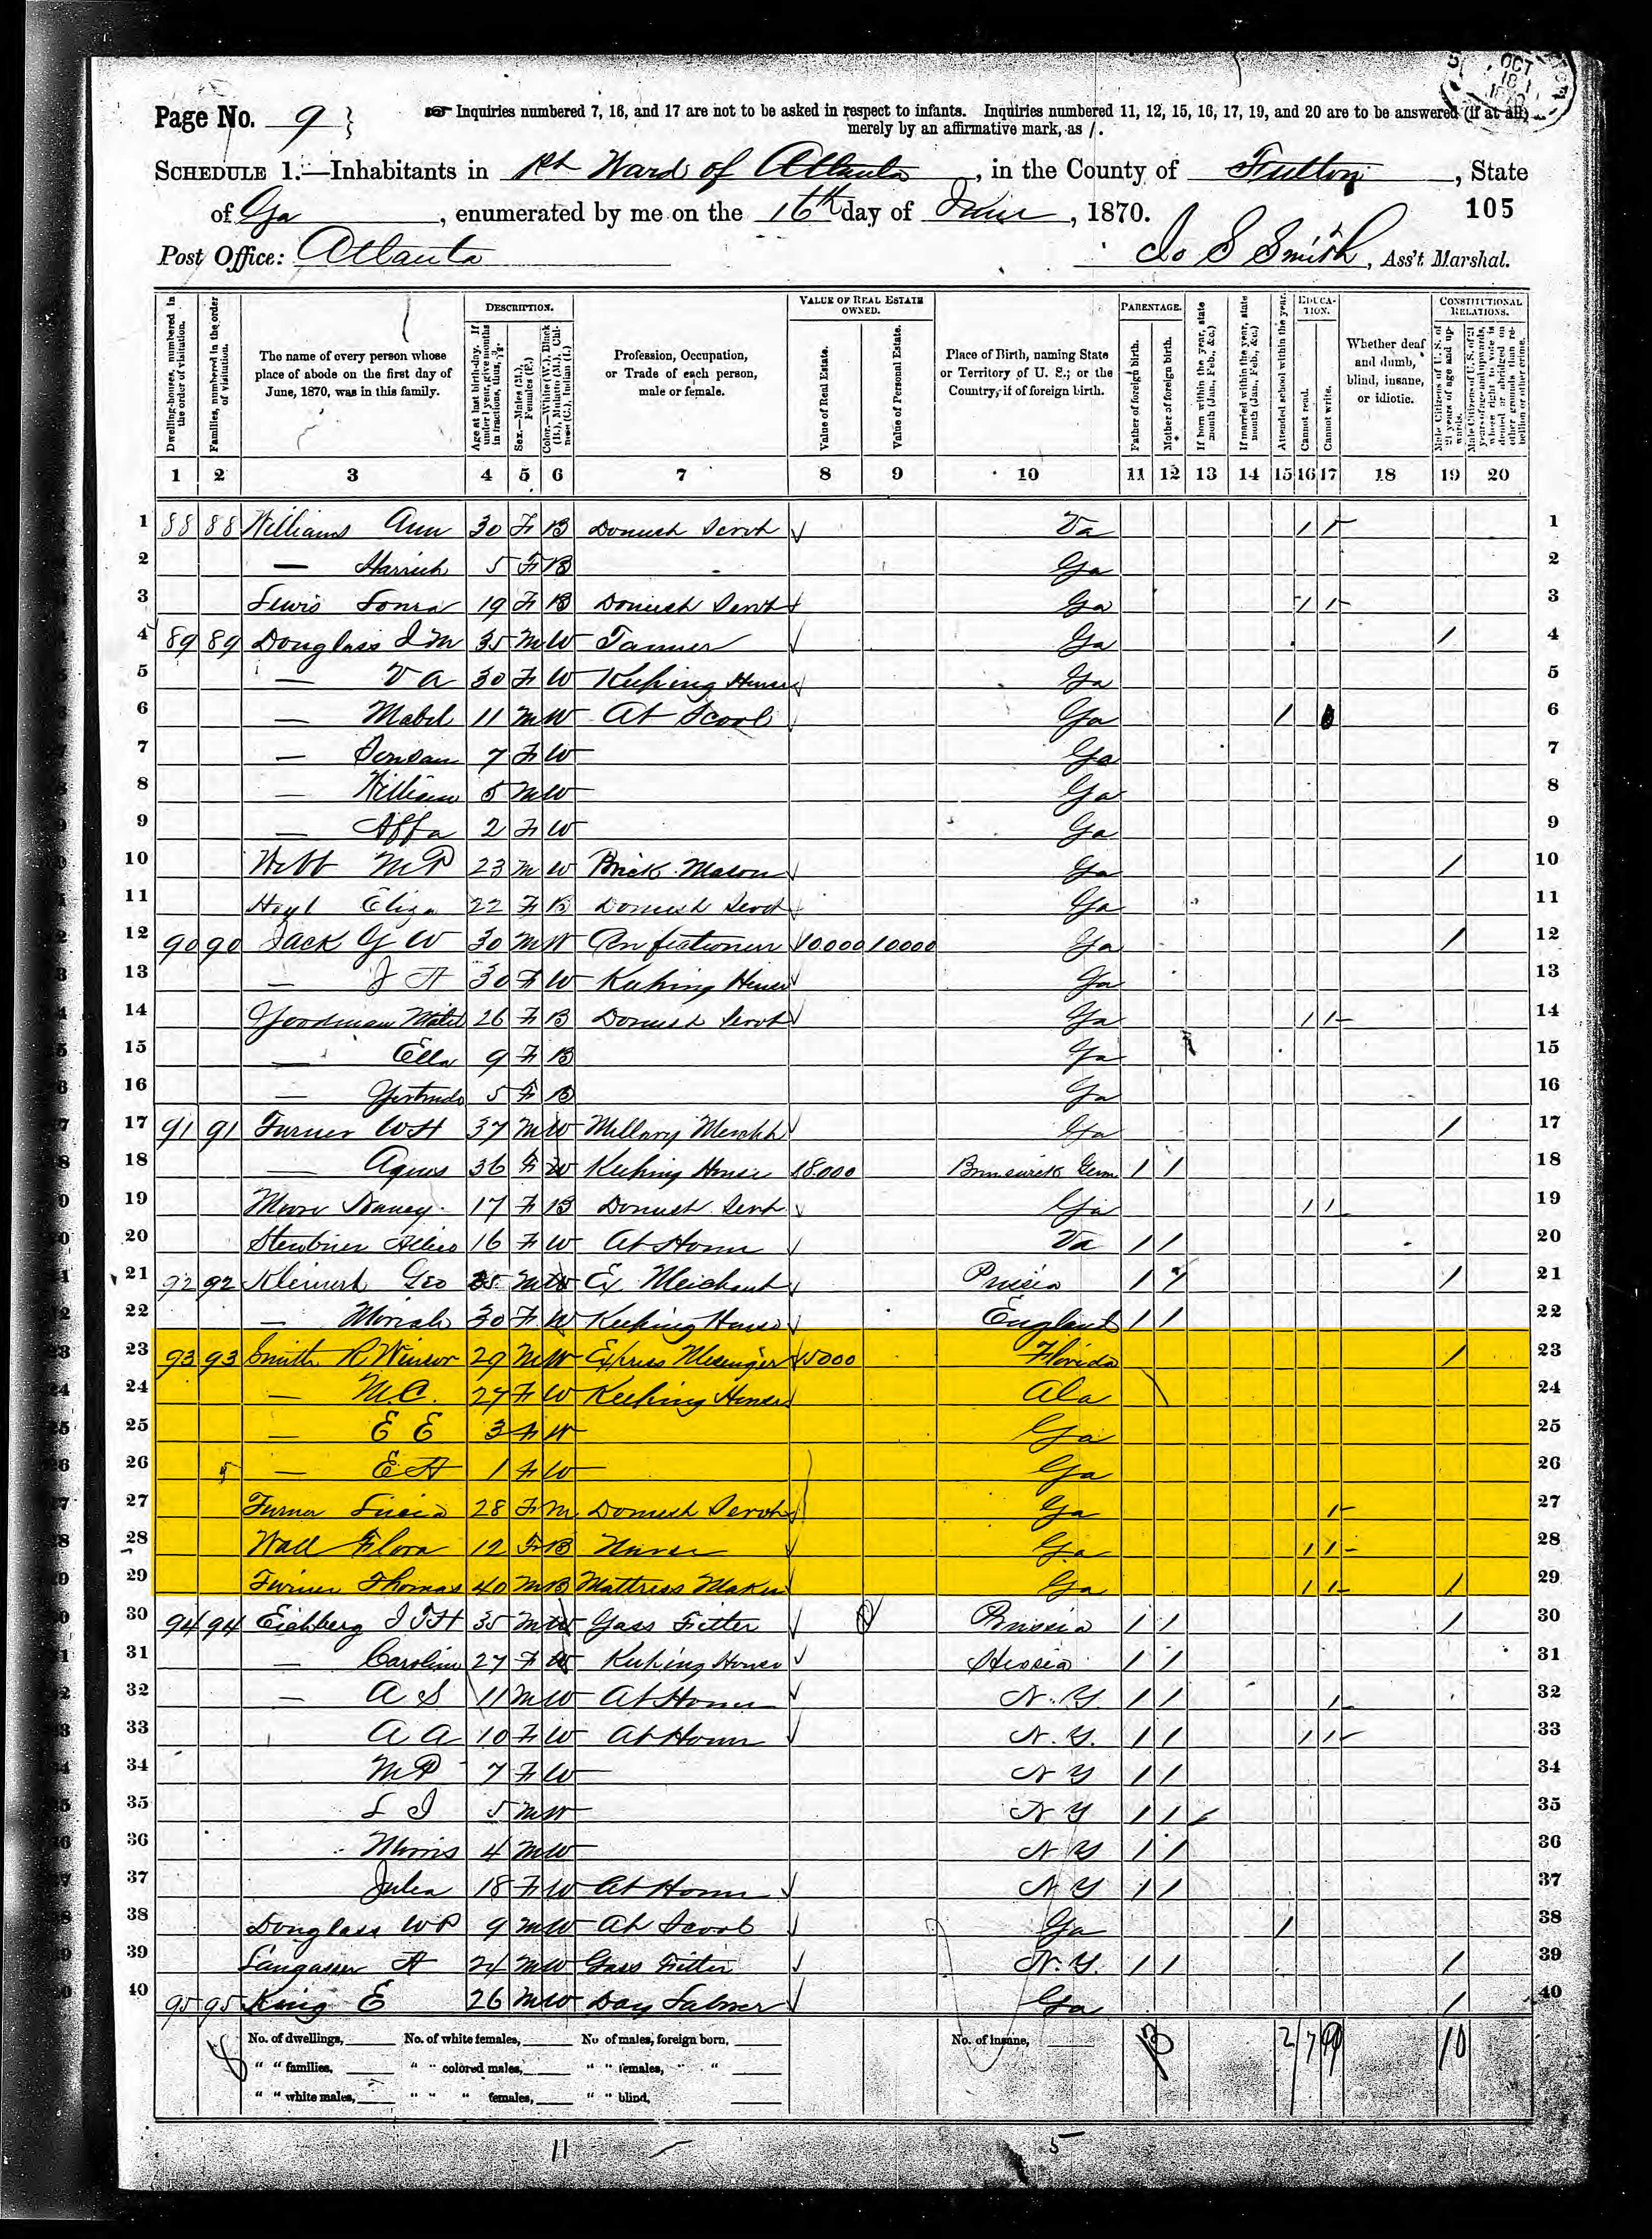 Page No. 9
Inquiries numbered 7, 16, and 17 are not to be asked in respect to infants. Inquiries numbered 11, 12, 15, 16, 17, 19, and 20 are to be answered (if at all)
merely by an affirmative mark, as /.
SCHEDULE 1.—Inhabitants in 1st Ward of Atlanta, in the County of Fulton, State
of Ga, enumerated by me on the 16th day of June, 1870.
105
Post Office: Atlanta
Jo S Smith, Ass't Marshal.
OCT 18
DESCRIPTION.
VALUE OF REAL ESTATE OWNED.
PARENTAGE.
EDUCATION.
CONSTITUTIONAL RELATIONS.
Dwelling-houses, numbered in the order of visitation.
Families, numbered in the order of visitation.
The name of every person whose place of abode on the first day of June, 1870, was in this family.
Age at last birth-day. If under 1 year, give months in fractions, thus, 3/12.
Sex.—Males (M.), Females (F.)
Color.—White (W.), Black (B.), Mulatto (M.), Chinese (C.), Indian (I.)
Profession, Occupation, or Trade of each person, male or female.
Value of Real Estate.
Value of Personal Estate.
Place of Birth, naming State or Territory of U. S.; or the Country, if of foreign birth.
Father of foreign birth.
Mother of foreign birth.
If born within the year, state month (Jan., Feb., &c.)
If married within the year, state month (Jan., Feb., &c.)
Attended school within the year.
Cannot read.
Cannot write.
Whether deaf and dumb, blind, insane, or idiotic.
Male Citizens of U. S. of 21 years of age and upwards.
Male Citizens of U. S. of 21 years of age and upwards, whose right to vote is denied or abridged on other grounds than rebellion or other crime.
1 2 3 4 5 6 7 8 9 10 11 12 13 14 15 16 17 18 19 20
1 88 88 Williams Ann 30 F B Va / / 1
2 — 5 F B Ga 2
3 Lewis 19 F B Ga / / 3
4 89 89 Douglass J M 35 M W Tanner Ga / 4
5 — V A 30 F W Keeping House Ga 5
6 — Mabel 11 M W At Scool Ga / 6
7 — 7 F W Ga 7
8 — William 5 M W Ga 8
9 — Affa 2 F W Ga 9
10 Webb M P 23 M W Brick Mason Ga / 10
11 Hoyl Eliza 22 F B Ga 11
12 90 90 Jack G W 30 M W Confectioner 10.000 10000 Ga / 12
13 — J H 30 F W Keeping House Ga 13
14 Goodman 26 F B Ga / / 14
15 — Ella 9 F B Ga 15
16 — Gertrude 5 F B Ga 16
17 91 91 Turner W H 37 M W Ga / 17
18 — Agnes 36 F W Keeping House 18.000 Brunswick Germ / / 18
19 Moore Nancy 17 F B Ga / / 19
20 16 F W At Home Va / / 20
21 92 92 Geo 35 M W Ex Merchant Prusia / / / 21
22 — Moriah 30 F W Keeping House England / / 22
23 93 93 Smith R Winsor 29 M W Express Mesenger 5000 Florida / 23
24 — M.C. 27 F W Keeping House Ala 24
25 — E E 3 F W Ga 25
26 — E H 1 F W Ga 26
27 Turner 28 F M Ga / 27
28 Wall Flora 12 F B Nurse Ga / / 28
29 Thomas 40 M B Mattress Maker Ga / / / 29
30 94 94 Eichberg J T H 35 M W Gass Fitter Prussia / / / 30
31 — Caroline 27 F W Keeping House / / 31
32 — A S 11 M W At Home N.Y. / / / 32
33 A A 10 F W At Home N.Y. / / / / 33
34 M P 7 F W N Y / / 34
35 L J 5 M W N Y / / 35
36 Morris 4 M W N Y / / 36
37 Julia 18 F W At Home N Y / / 37
38 Douglass W P 9 M W At Scool Ga / 38
39 24 M W Gass Fitter N.Y. / / / 39
40 95 95 King E 26 M W Day Ga / 40
No. of dwellings, No. of white females, No. of males, foreign born, No. of insane,
" " families, " " colored males, " " females, " "
" " white males, " " " females, " " blind,
2 7 9 10
11 5